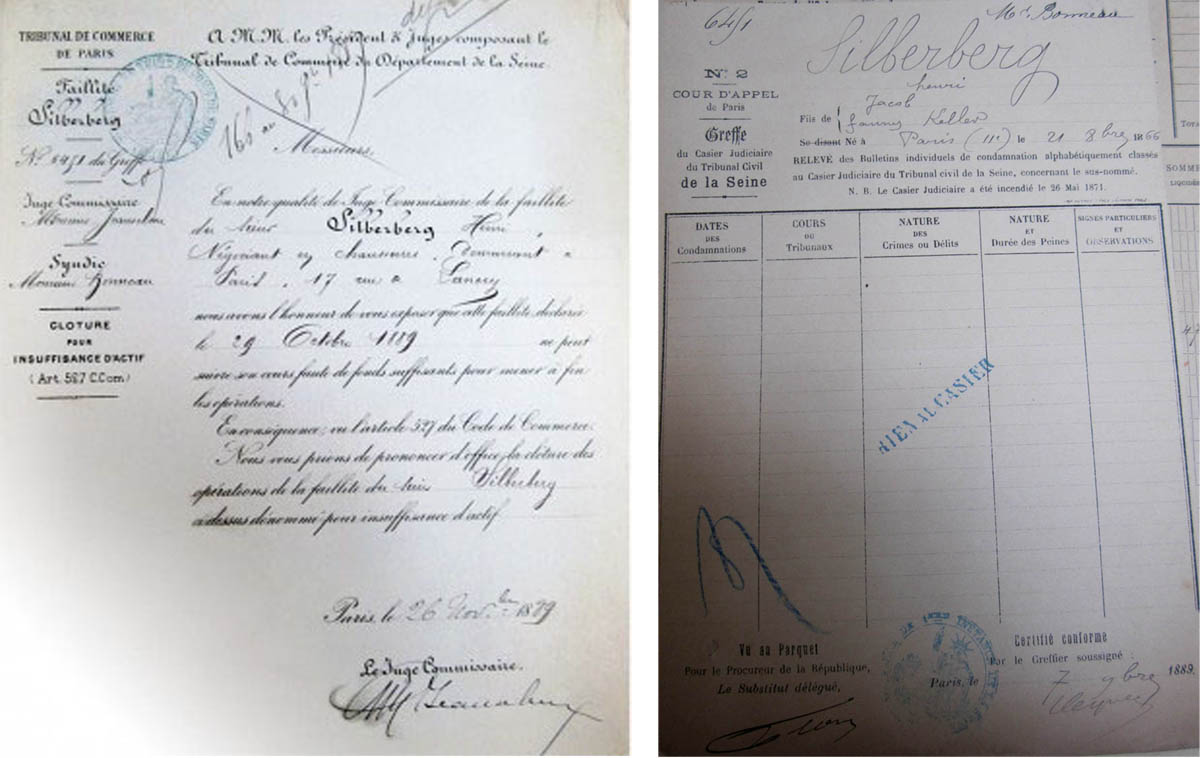 TRIBUNAL DE COMMERCE
DE PARIS
Faillite
Silberberg
N° 6451 du Greffe
Juge Commissaire
Monsieur
Syndic
Monsieur Bonneau
CLOTURE
POUR
INSUFFISANCE D'ACTIF
(Art. 527 C.Com)
A M.M. les Président & Juges composant le
Tribunal de Commerce du Département de la Seine.
Messieurs,
En notre qualité de Juge Commissaire de la faillite
du sieur Silberberg Henri,
Négociant en chaussures, Demeurant à
Paris, 17 rue de Lancry
nous avons l'honneur de vous exposer que cette faillite, déclarée
le 29 Octobre 1889 ne peut
suivre son cours faute de fonds suffisants pour mener à fin
les opérations.
En conséquence, vu l'article 527 du Code de Commerce,
Nous vous prions de prononcer d'office, la clôture des
opérations de la faillite du sieur Silberberg
ci dessus dénommé pour insuffisance d'actif
Paris, le 26 Novbre 1889
Le Juge Commissaire.
6451
Mr Bonneau
Silberberg
henri
N° 2
COUR D'APPEL
de Paris
Greffe
du Casier Judiciaire
du Tribunal Civil
de la Seine
Fils de Jacob
fanny Keller
Se disant Né à Paris (III) le 21 8bre 1866
RELEVÉ des Bulletins individuels de condamnation alphabétiquement classés
au Casier Judiciaire du Tribunal civil de la Seine, concernant le sus-nommé.
N. B. Le Casier Judiciaire a été incendié le 26 Mai 1871.
DATES
DES
Condamnations
COURS
OU
Tribunaux
NATURE
DES
Crimes ou Délits
NATURE
ET
Durée des Peines
SIGNES PARTICULIERS
ET
OBSERVATIONS
RIEN AU CASIER
Vu au Parquet
Pour le Procureur de la République,
Le Substitut délégué,
Certifié conforme
Par le Greffier soussigné :
Paris, le 7 9bre 1889.